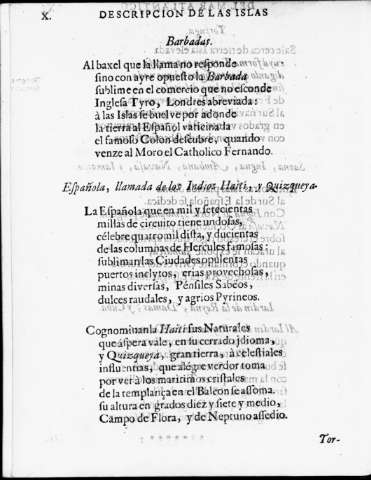 X. DESCRIPCION DE LAS ISLAS
Barbadas.
Al baxel que la llama no responde
sino con ayre opuesto la Barbada
sublime en el comercio que no esconde
Inglesa Tyro, Londres abreviada:
à las Islas se buelve por adonde
la tierra al Español vaticinada
el famoso Colon descubre, quando
venze al Moro el Catholico Fernando.
Española, llamada de los Indios Haiti, y Quizqueya.
La Española que en mil y setecientas
millas de circuito tiene undosas,
célebre quatro mil dista, y ducientas
de las colunas de Hercules famosas:
subliman las Ciudades opulentas
puertos inclytos, crias provechosas,
minas diversas, Pénsiles Sabéos,
dulces raudales, y agrios Pyrineos.
Cognominanla Haiti sus Naturales
que áspera vale, en su cerrado jdioma,
y Quizqueya, gran tierra, à celestiales
influencias, que alégre verdor toma
por vèr à los maritimos cristales
de la templança en el Balcon se assoma.
su altura en grados diez y siete y medio,
Campo de Flora, y de Neptuno assedio.
Tor-